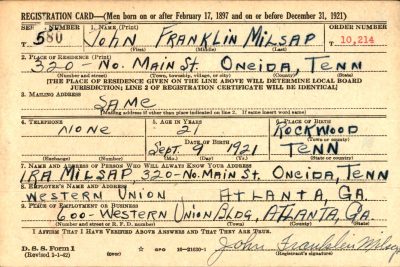 REGISTRATION CARD—(Men born on or after February 17, 1897 and on or before December 31, 1921)
SERIAL NUMBER 1. NAME (Print) ORDER NUMBER
T 580 JOHN FRANKLIN MILSAP 10,214
(First) (Middle) (Last)
2. PLACE OF RESIDENCE (Print)
320-No. MAIN St. ONEIDA, TENN
(Number and street) (Town, township, village, or city) (County) (State)
[THE PLACE OF RESIDENCE GIVEN ON THE LINE ABOVE WILL DETERMINE LOCAL BOARD
JURISDICTION; LINE 2 OF REGISTRATION CERTIFICATE WILL BE IDENTICAL]
3. MAILING ADDRESS
SAME
[Mailing address if other than place indicated on line 2. If same insert word same]
4. TELEPHONE 5. AGE IN YEARS 6. PLACE OF BIRTH
NONE 21 ROCKWOOD
DATE OF BIRTH (Town or county)
SEPT. 9 1921 TENN
(Exchange) (Number) (Mo.) (Day) (Yr.) (State or country)
7. NAME AND ADDRESS OF PERSON WHO WILL ALWAYS KNOW YOUR ADDRESS
IRA MILSAP, 320-No. MAIN St. ONEIDA, TENN
8. EMPLOYER'S NAME AND ADDRESS
WESTERN UNION ATLANTA, GA.
9. PLACE OF EMPLOYMENT OR BUSINESS
600-WESTERN UNION BLDG, ATLANTA, GA.
(Number and street or R. F. D. number) (Town) (County) (State)
I AFFIRM THAT I HAVE VERIFIED ABOVE ANSWERS AND THAT THEY ARE TRUE.
D. S. S. Form 1 (over) GPO 16—21630-1 John Franklin Milsap
(Revised 1-1-42) (Registrant's signature)